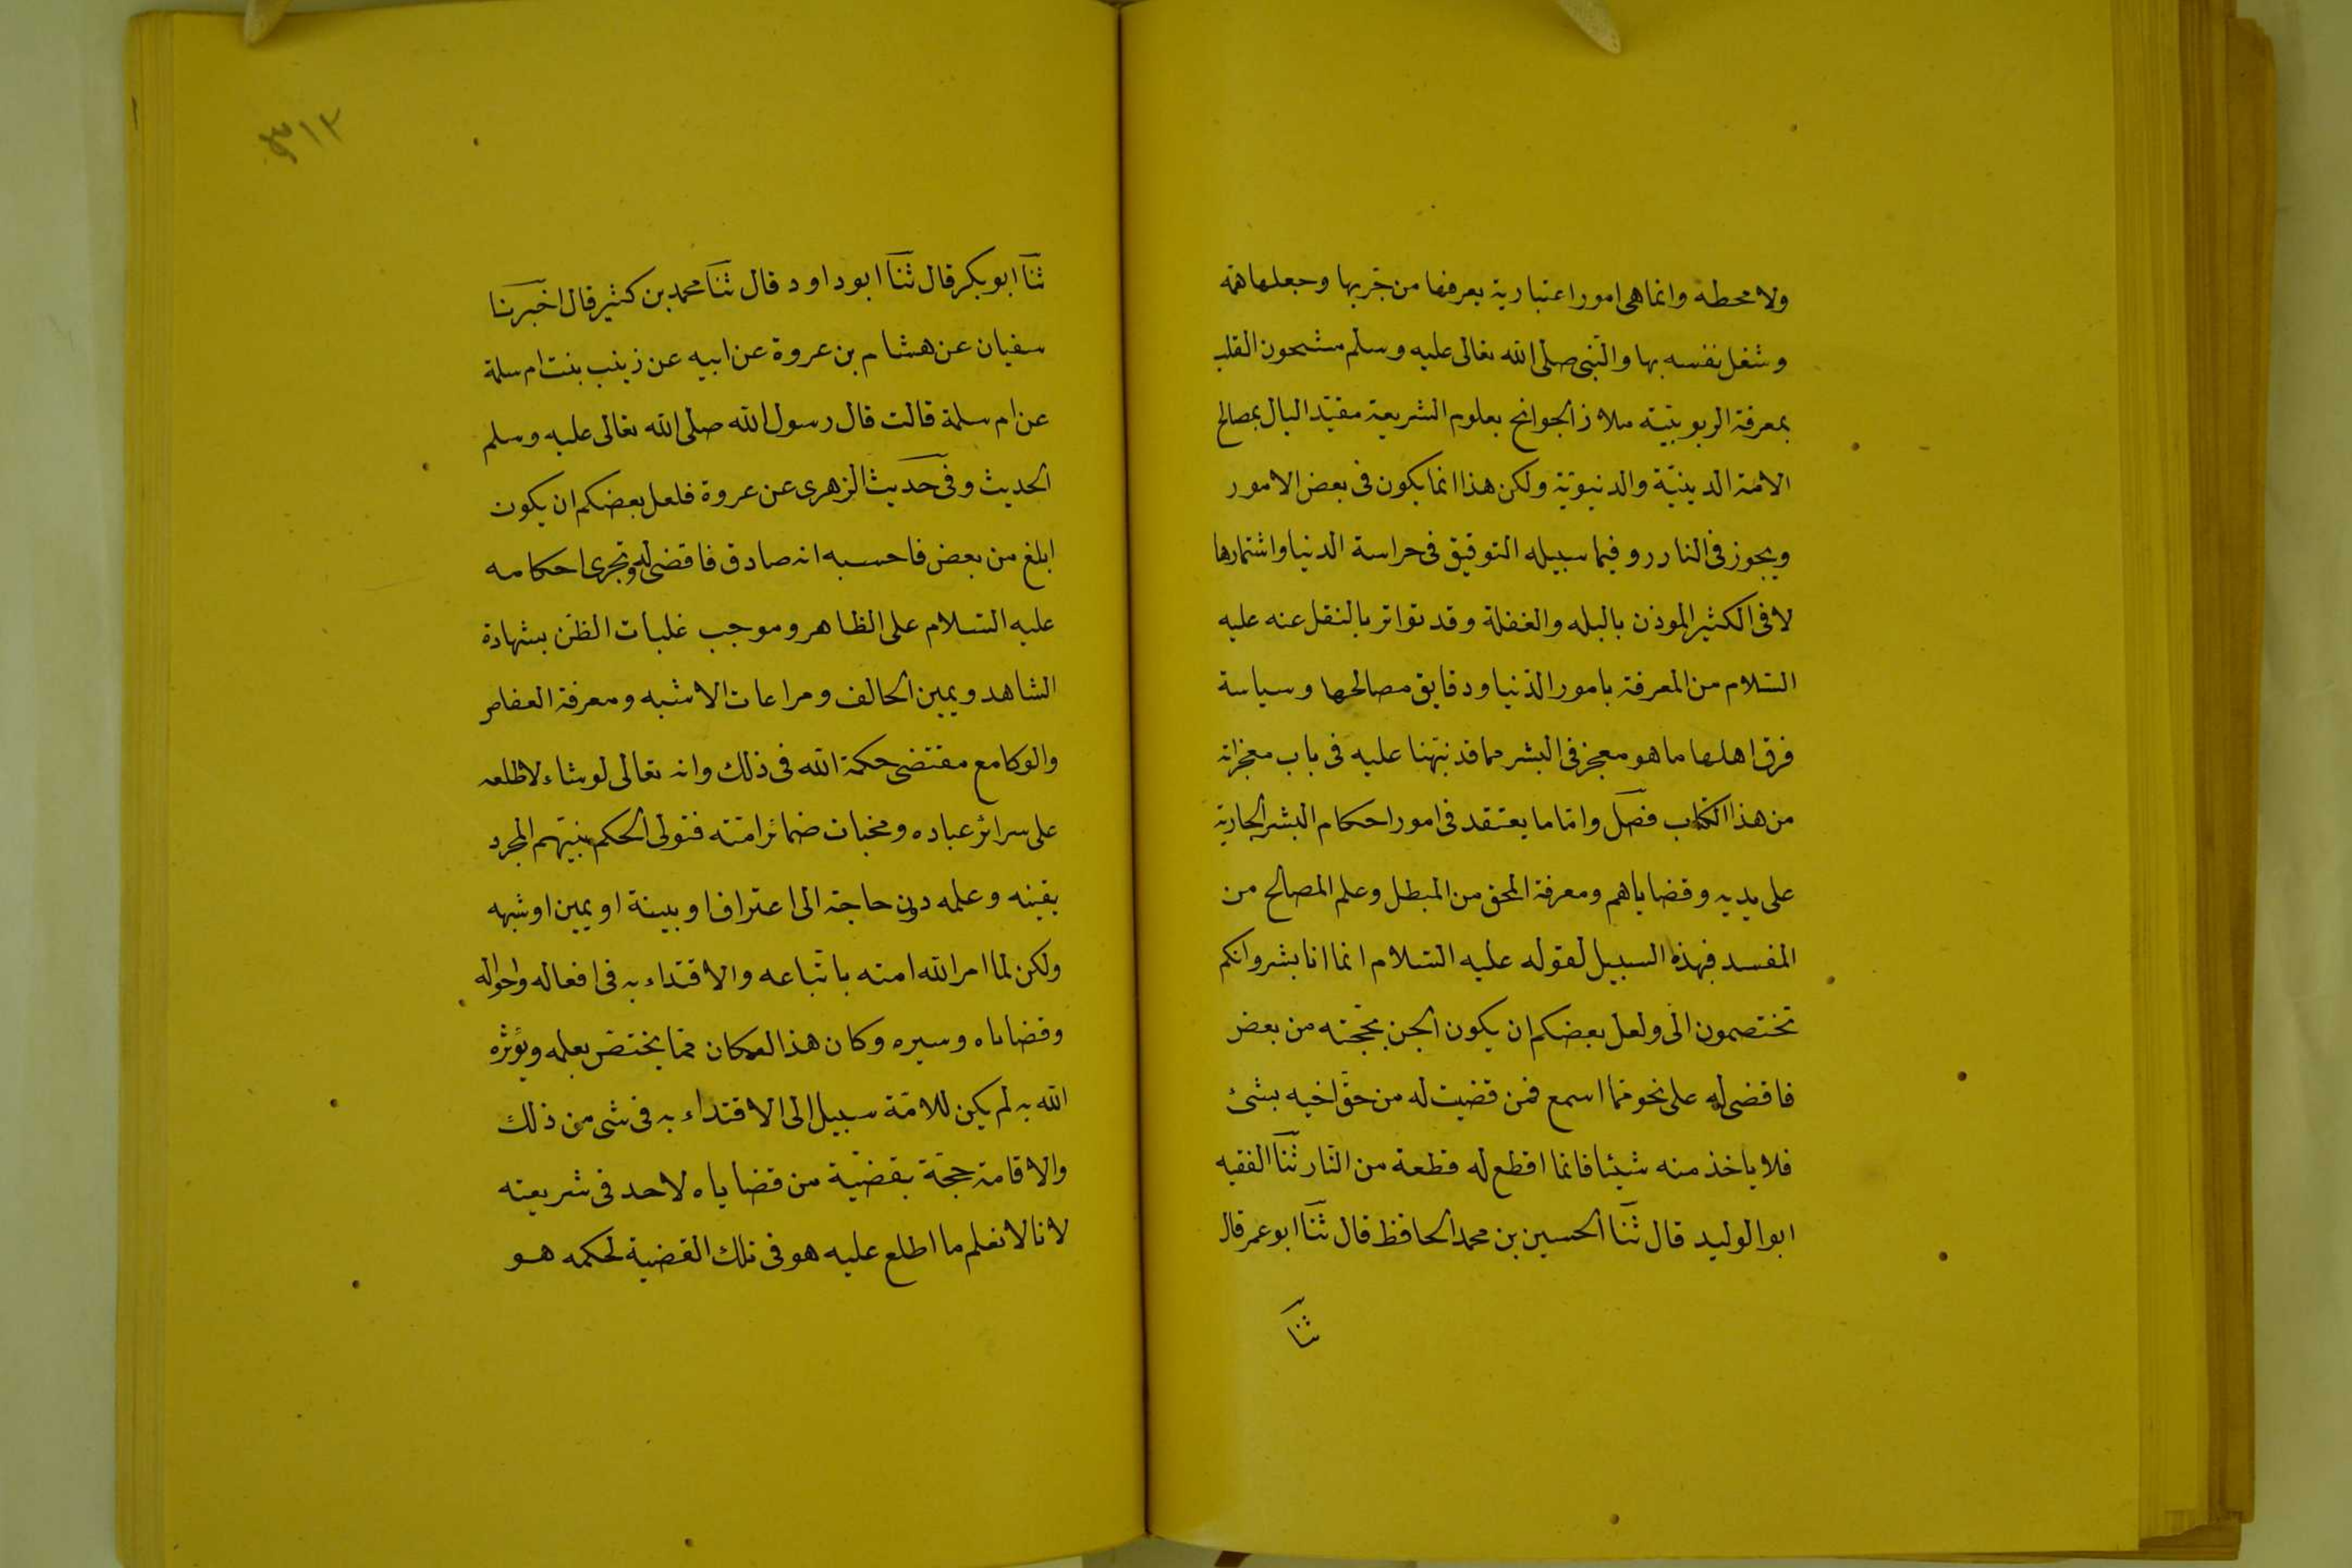 ولا محطه وانما هى امور اعتبارية يعرفها من جربها وجعلها همه
وشغل نفسه بها والنبى صلى الله تعالى عليه وسلم مشحون القلب
بمعرفة الربوبية ملاذ الجوانح بعلوم الشريعة مقيد البال بمصالح
الامة الدينية والدنيوية ولكن هذا انما يكون فى بعض الامور
ويجوز فى النادر وفيما سبيله التوقيق فى حراسة الدنيا واشتمارها
لا فى الكثير الموذن بالبله والغفلة وقد تواتر بالنقل عنه عليه
السلام من المعرفة بامور الدنيا ودقايق مصالحها وسياسة
فرق اهلها ما هو معجز فى البشر مما قد نبهنا عليه فى باب معجزاته
من هذا الكتاب فصل واما ما يعتقد فى امور احكام البشر الجارية
على يديه وقضاياهم ومعرفة المحق من المبطل وعلم المصالح من
المفسد فبهذه السبيل لقوله عليه السلام انما انا بشر وانكم
تختصمون الى ولعل بعضكم ان يكون الحن بحجته من بعض
فاقضى له على نحو مما اسمع فمن قضيت له من حق اخيه بشئ
فلا ياخذ منه شيئا فانما اقطع له قطعة من النار ثنا الفقيه
ابو الوليد قال ثنا الحسين بن محمد الحافظ قال ثنا ابو عمر قال
ثنا
٣١٢
ثنا ابو بكر قال ثنا ابو داود قال ثنا محمد بن كثير قال اخبرنا
سفيان عن هشام بن عروة عن ابيه عن زينب بنت ام سلمة
عن ام سلمة قالت قال رسول الله صلى الله تعالى عليه وسلم
الحديث وفى حديث الزهرى عن عروة فلعل بعضكم ان يكون
ابلغ من بعض فاحسبه انه صادق فاقضى له وتجرى احكامه
عليه السلام على الظاهر وموجب غلبات الظن بشهادة
الشاهد ويمين الحالف ومراعات الاشبه ومعرفة العفاص
والوكا مع مقتضى حكمة الله فى ذلك وانه تعالى لو شاء لاطلعه
على سرائر عباده ومخبات ضمائر امته فتولى الحكم بينهم المجرد
يقينه وعلمه دون حاجة الى اعتراف او بينة او يمين او شبهه
ولكن لما امر الله امته باتباعه والاقتداء به فى افعاله واحواله
وقضاياه وسيره وكان هذا لو كان مما يختص بعلمه ويؤثره
الله به لم يكن للامة سبيل الى الاقتداء به فى شى من ذلك
والاقامة حجة بقضية من قضاياه لاحد فى شريعته
لانا لا نعلم ما اطلع عليه هو فى تلك القضية لحكمه هو